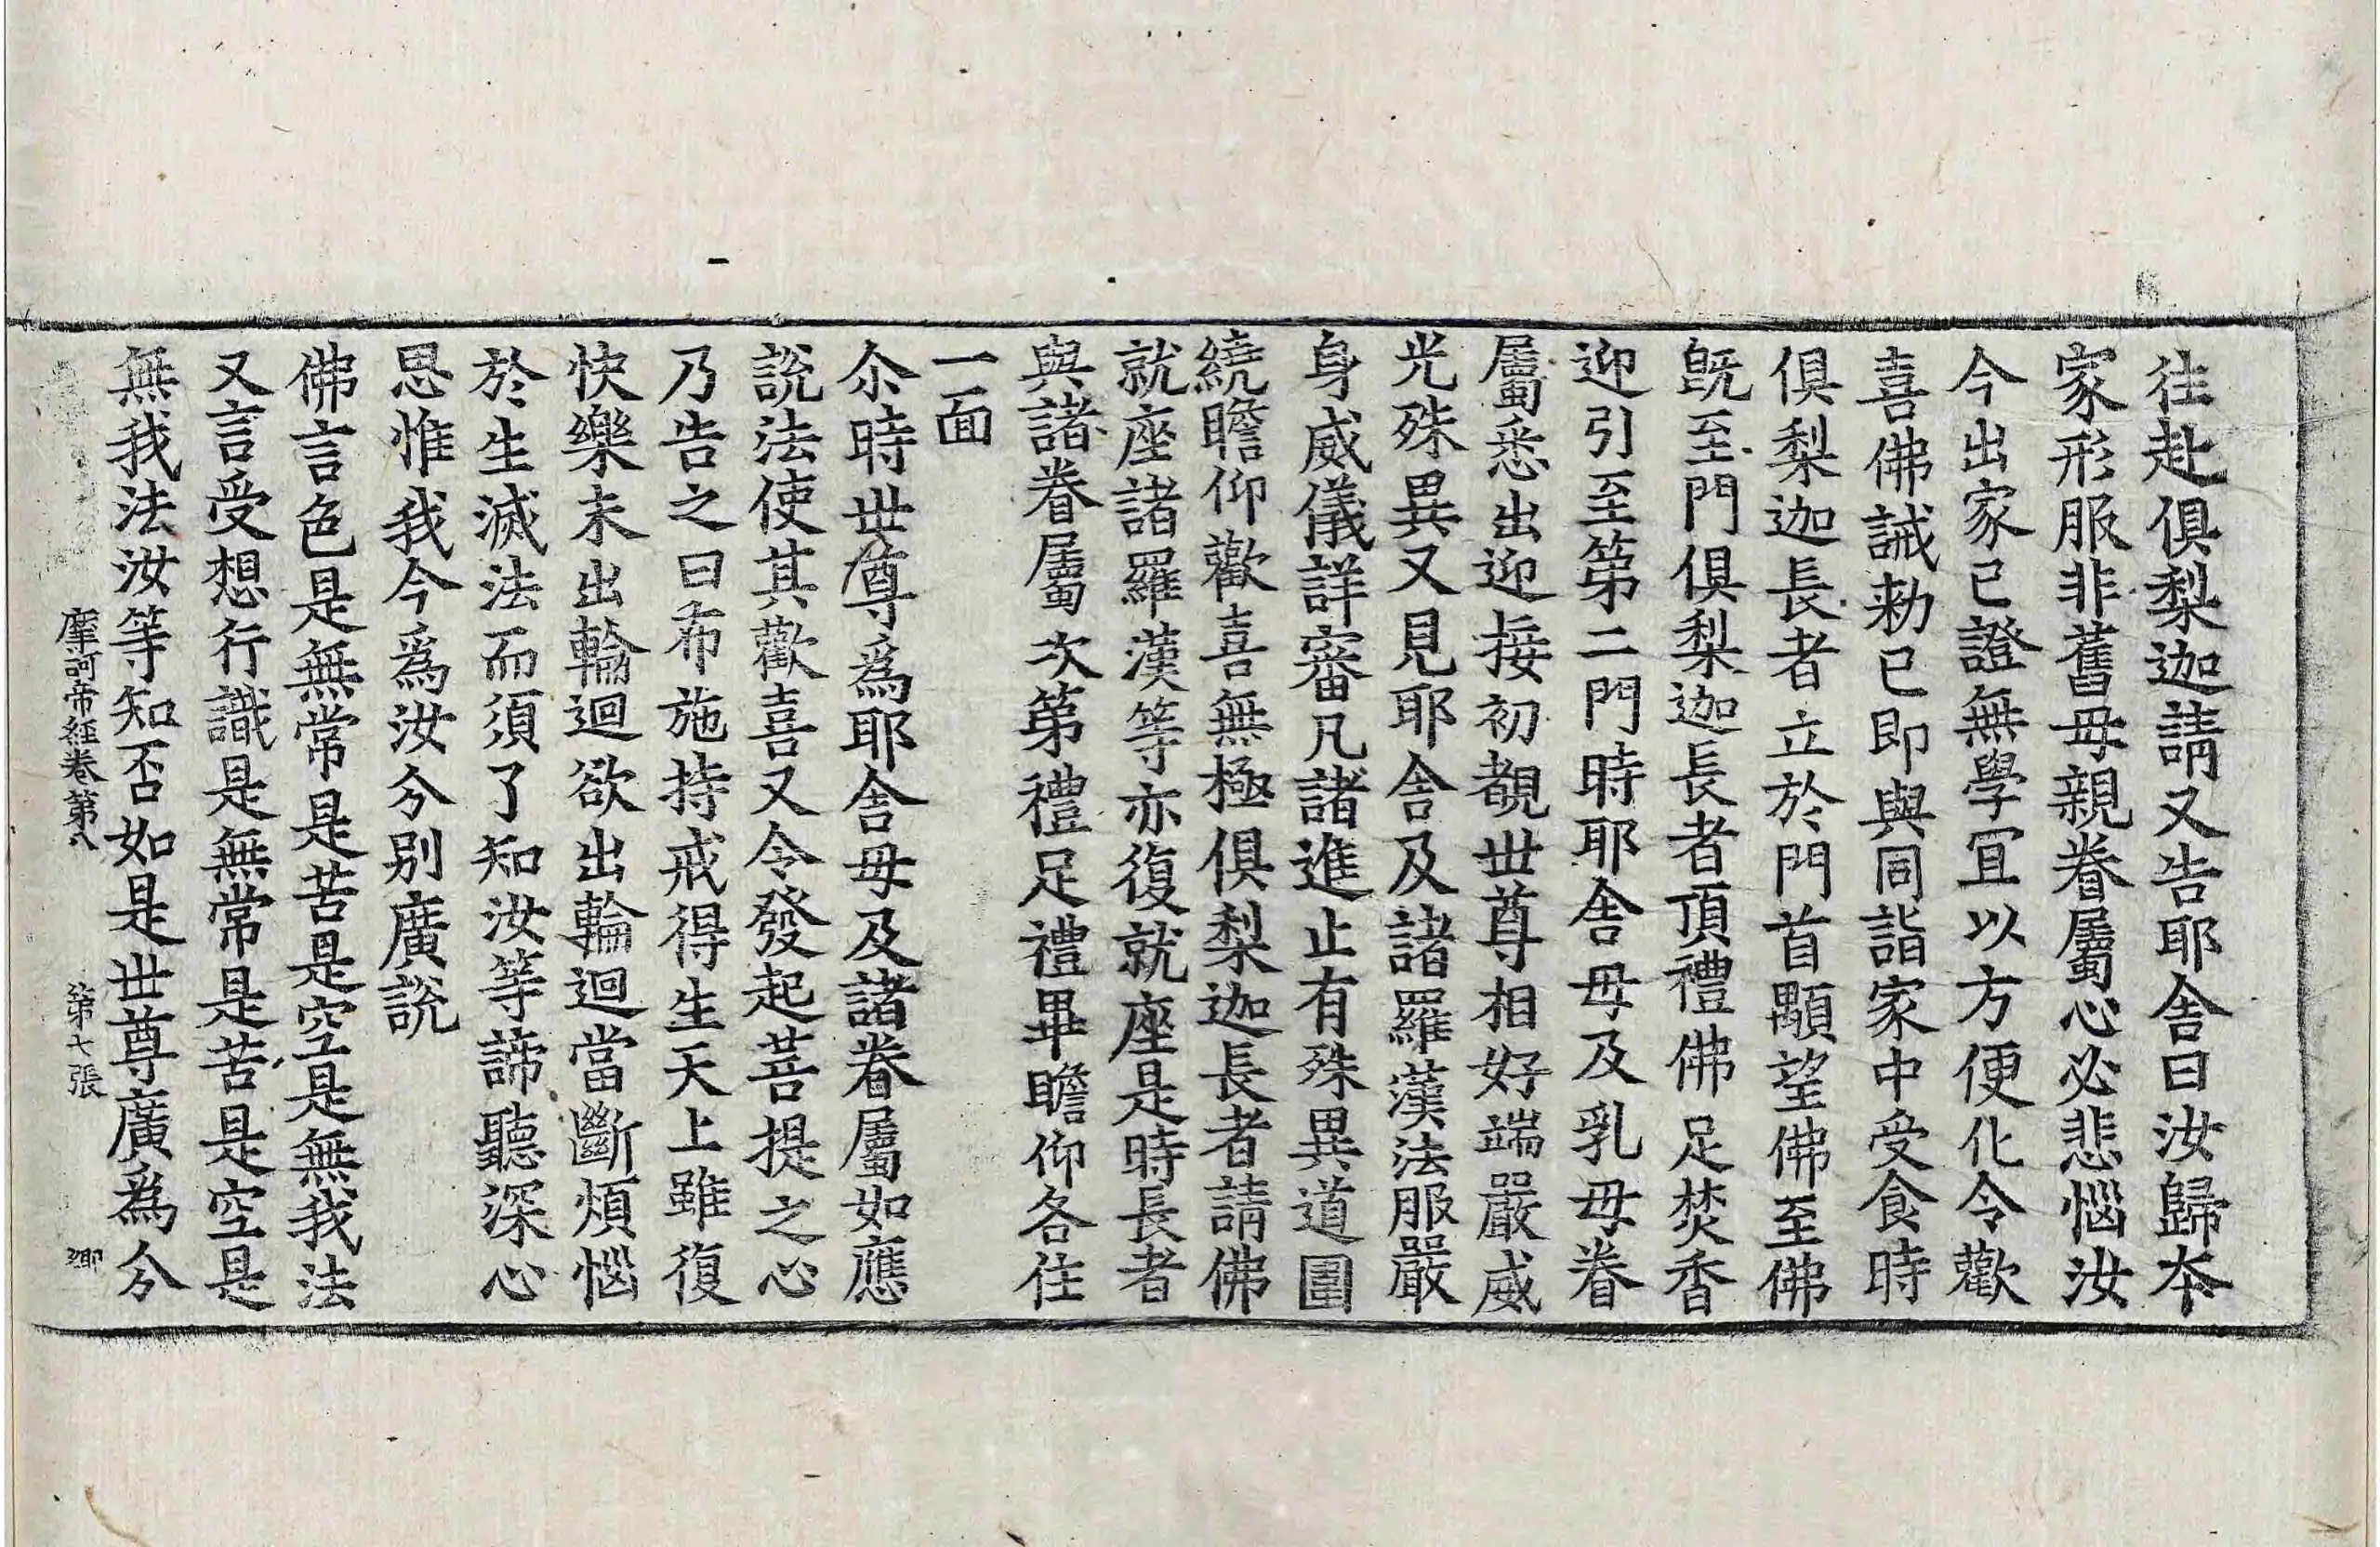 徃赴俱梨迦請又告耶舍曰汝歸夲
家形服非舊母親眷屬心必悲惱汝
今出家已證無學冝以方便化令歡
喜佛誡勑已即與同詣家中受食時
俱梨迦長者立於門首顒望佛至佛
既至門俱梨迦長者頂禮佛足焚香
迎引至第二門時耶舍母及乳母眷
屬悉出迎接初覩世尊相好端嚴威
光殊異又見耶舍及諸羅漢法服嚴
身威儀詳審凡諸進止有殊異道圍
繞瞻仰歡喜無極俱梨迦長者請佛
就座諸羅漢等亦復就座是時長者
與諸眷屬次第禮足禮畢瞻仰各住
一面
尒時世尊爲耶舍母及諸眷屬如應
說法使其歡喜又令發起菩提之心
乃告之曰布施持戒得生天上雖復
快樂未出輪迴欲出輪迴當斷煩惱
於生滅法而須了知汝等諦聽深心
思惟我今爲汝分別廣說
佛言色是無常是苦是空是無我法
又言受想行識是無常是苦是空是
無我法汝等知否如是世尊廣爲分
摩訶帝經卷第八 第七張 卿